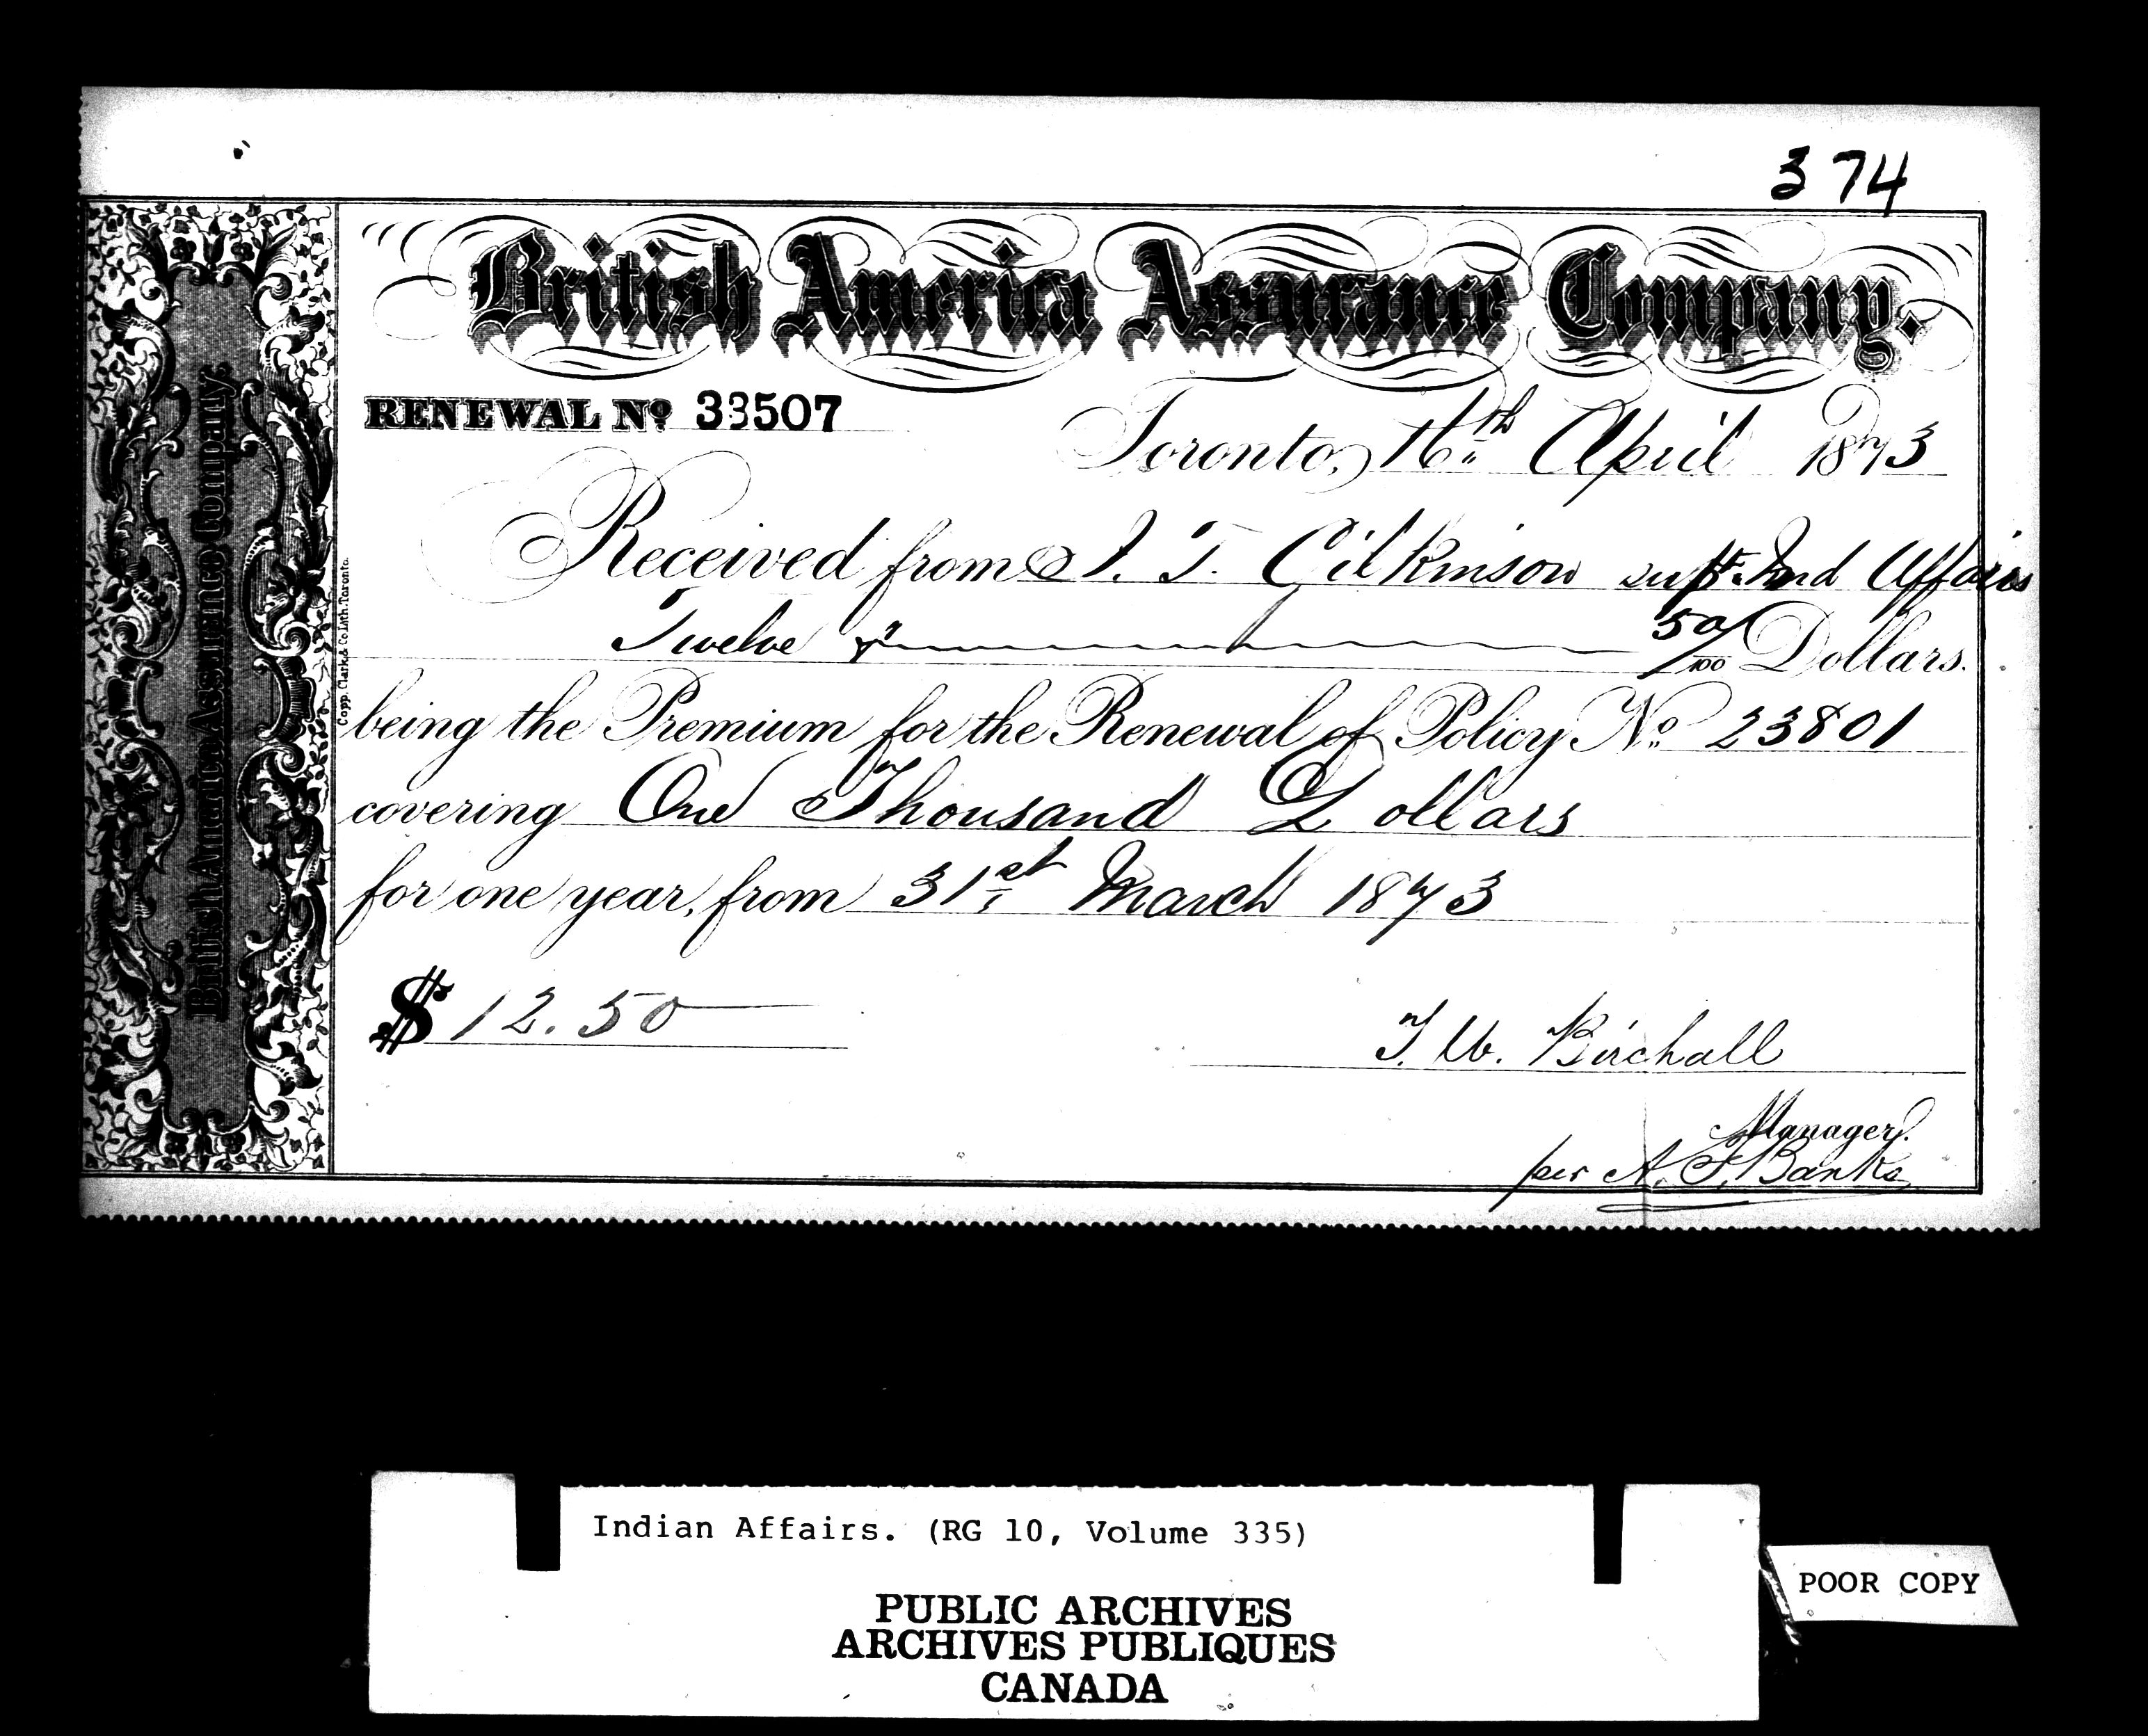 374
British America Assurance Company.
British America Assurance Company.
RENEWAL No 33507
Toronto, 16th April 1873
Received from J. T. Gilkinson Supt Ind Affairs
Twelve 50/100 Dollars.
being the Premium for the Renewal of Policy No. 23801
covering One Thousand Dollars
for one year, from 31st March 1873
$ 12.50
T. W. Birchall
Manager.
per A. F. Banks
Copp, Clark & Co. Lith. Toronto.
Indian Affairs. (RG 10, Volume 335)
PUBLIC ARCHIVES
ARCHIVES PUBLIQUES
CANADA
POOR COPY